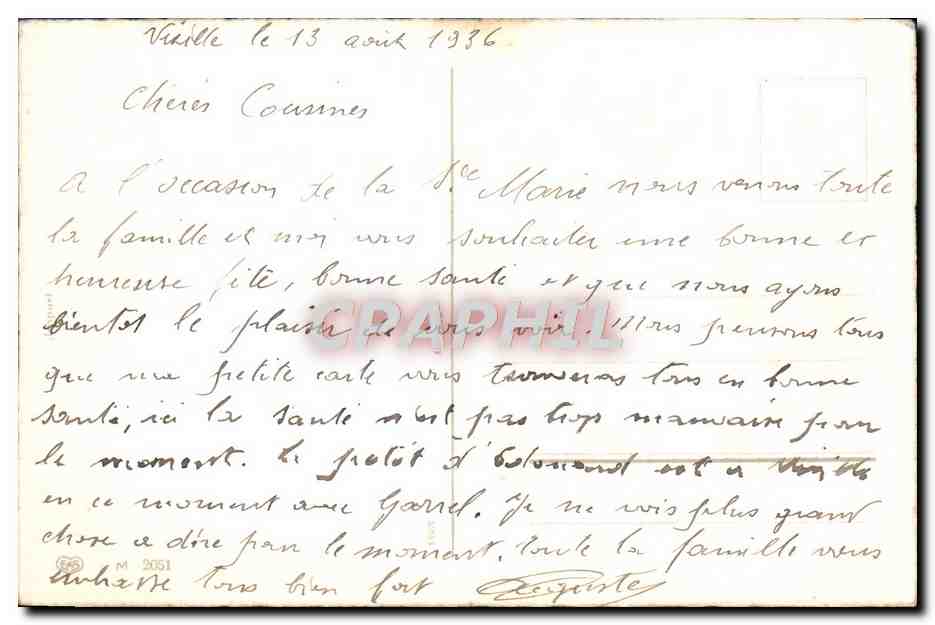 Vizille le 13 août 1936
Chères Cousines
A l'occasion de la Ste Marie nous venons toute
la famille et moi vous souhaiter une bonne et
heureuse fête, bonne santé et que nous ayons
bientot le plaisir de vous voir. Nous pensons tous
que ma petite carte vous trouveras tous en bonne
santé, ici la santé n'est pas trop mauvaise pour
le moment. Le petit d'Edouard est a Vizille
en ce moment avec Garrel. Je ne vois plus grand
chose a dire pour le moment. Toute la famille vous
embrasse tous bien fort Auguste
CPAPHIL
EAS M 2051